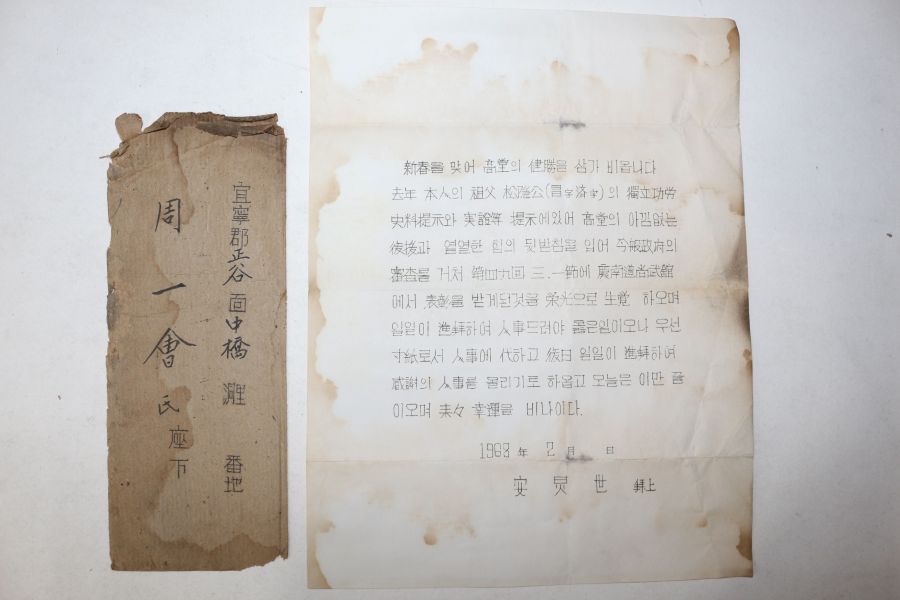 宜寧郡正谷面中橋 番地
周一會氏座下
新春을 맞어 高堂의 健勝을 삼가 비옵니다
去年 本人의 祖父 松隱公(의 獨立功労
史料提示와 実證等 提示에있어 高堂의 아낌없는
後援과 열열한 힘의 뒷받침을 입어 今般政府의
審査를 거처 第四九回 三.一節에 慶南道尚武館
에서 表彰을 받게된것을 栄光으로 生覺 하오며
일일이 進拜하여 人事드려야 옳은일이오나 우선
寸紙로서 人事에 代하고 後日 일일이 進拜하여
感謝의 人事를 올리기로 하옵고 오늘은 이만 끝
이오며 来々 幸運을 비나이다.
1968 年 月 日
安 世 拜上